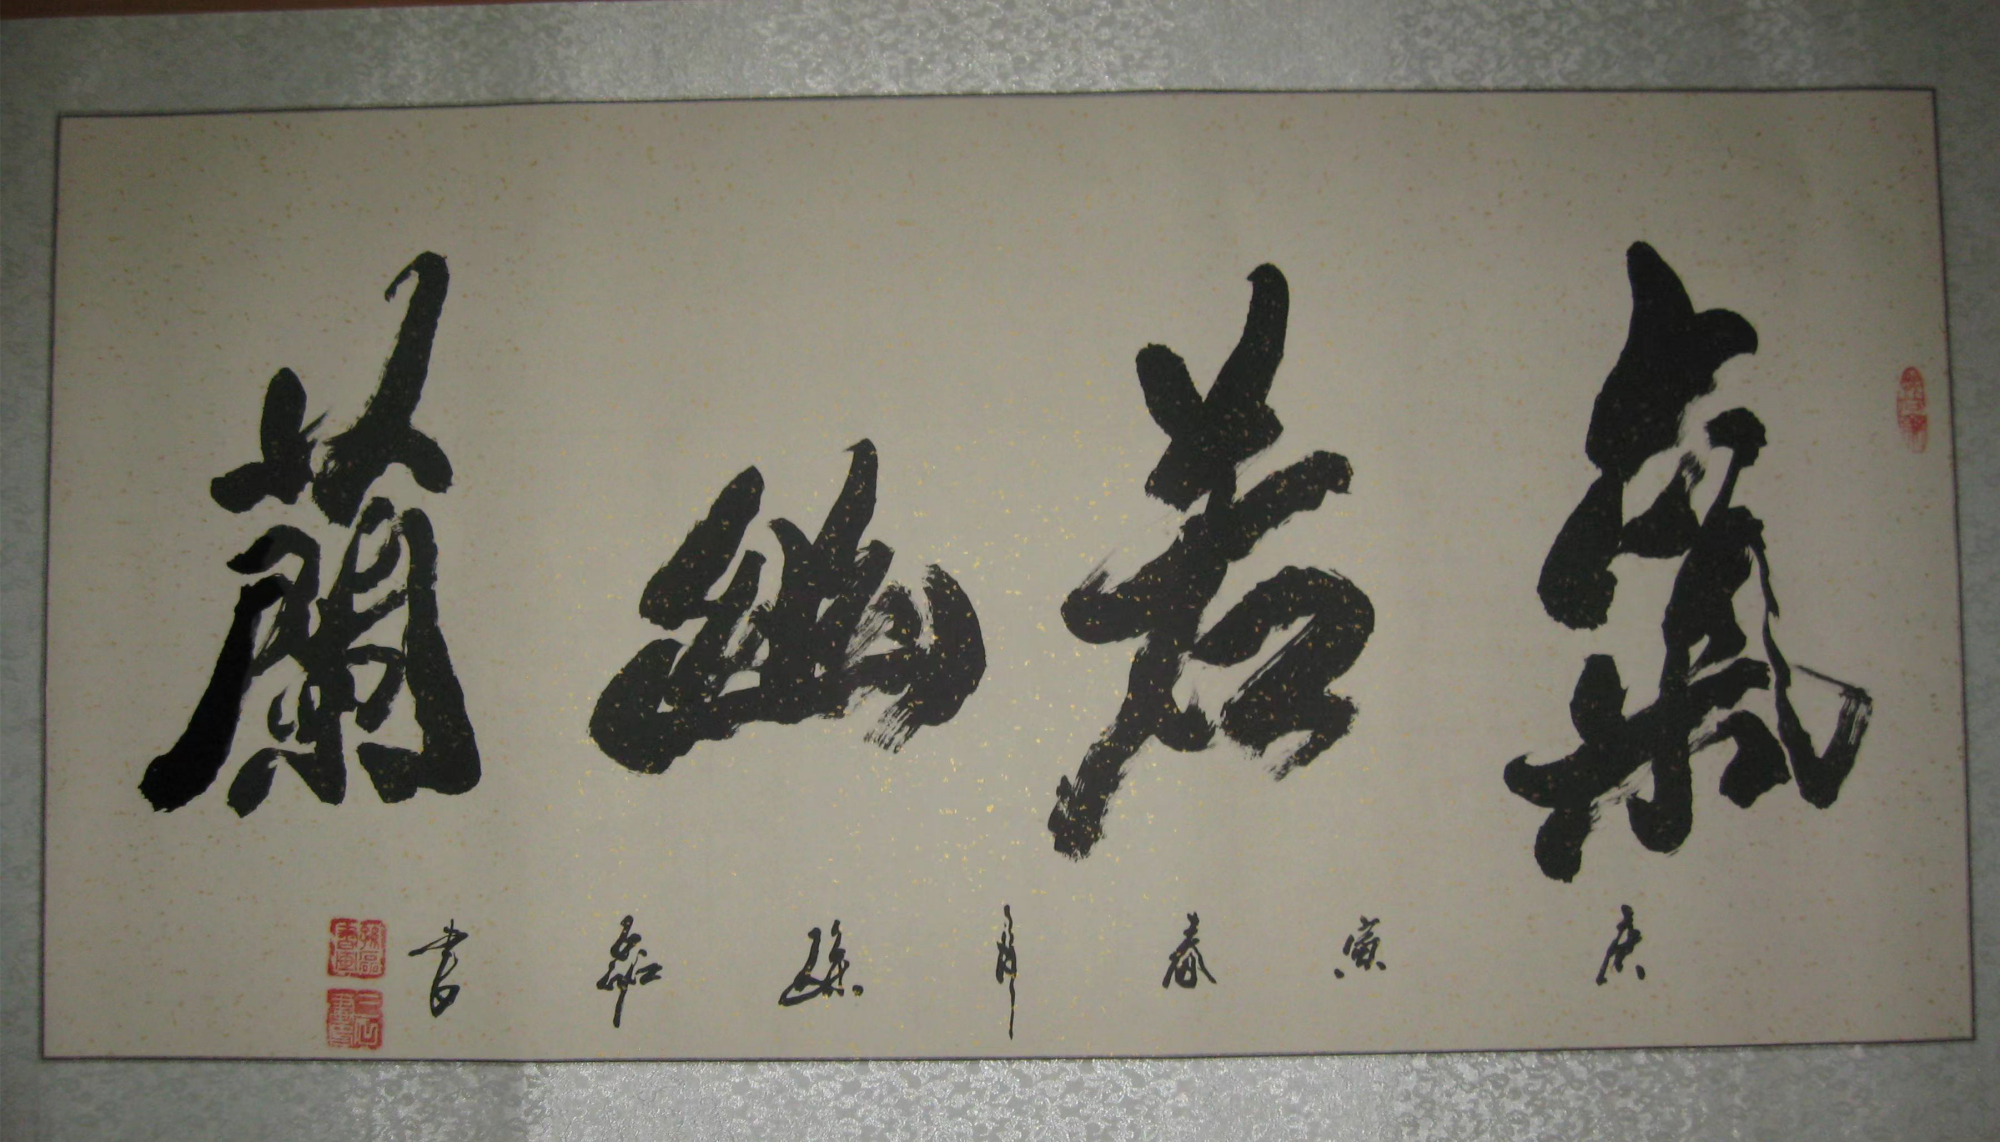 氣若幽蘭
庚寅春月孫磊書